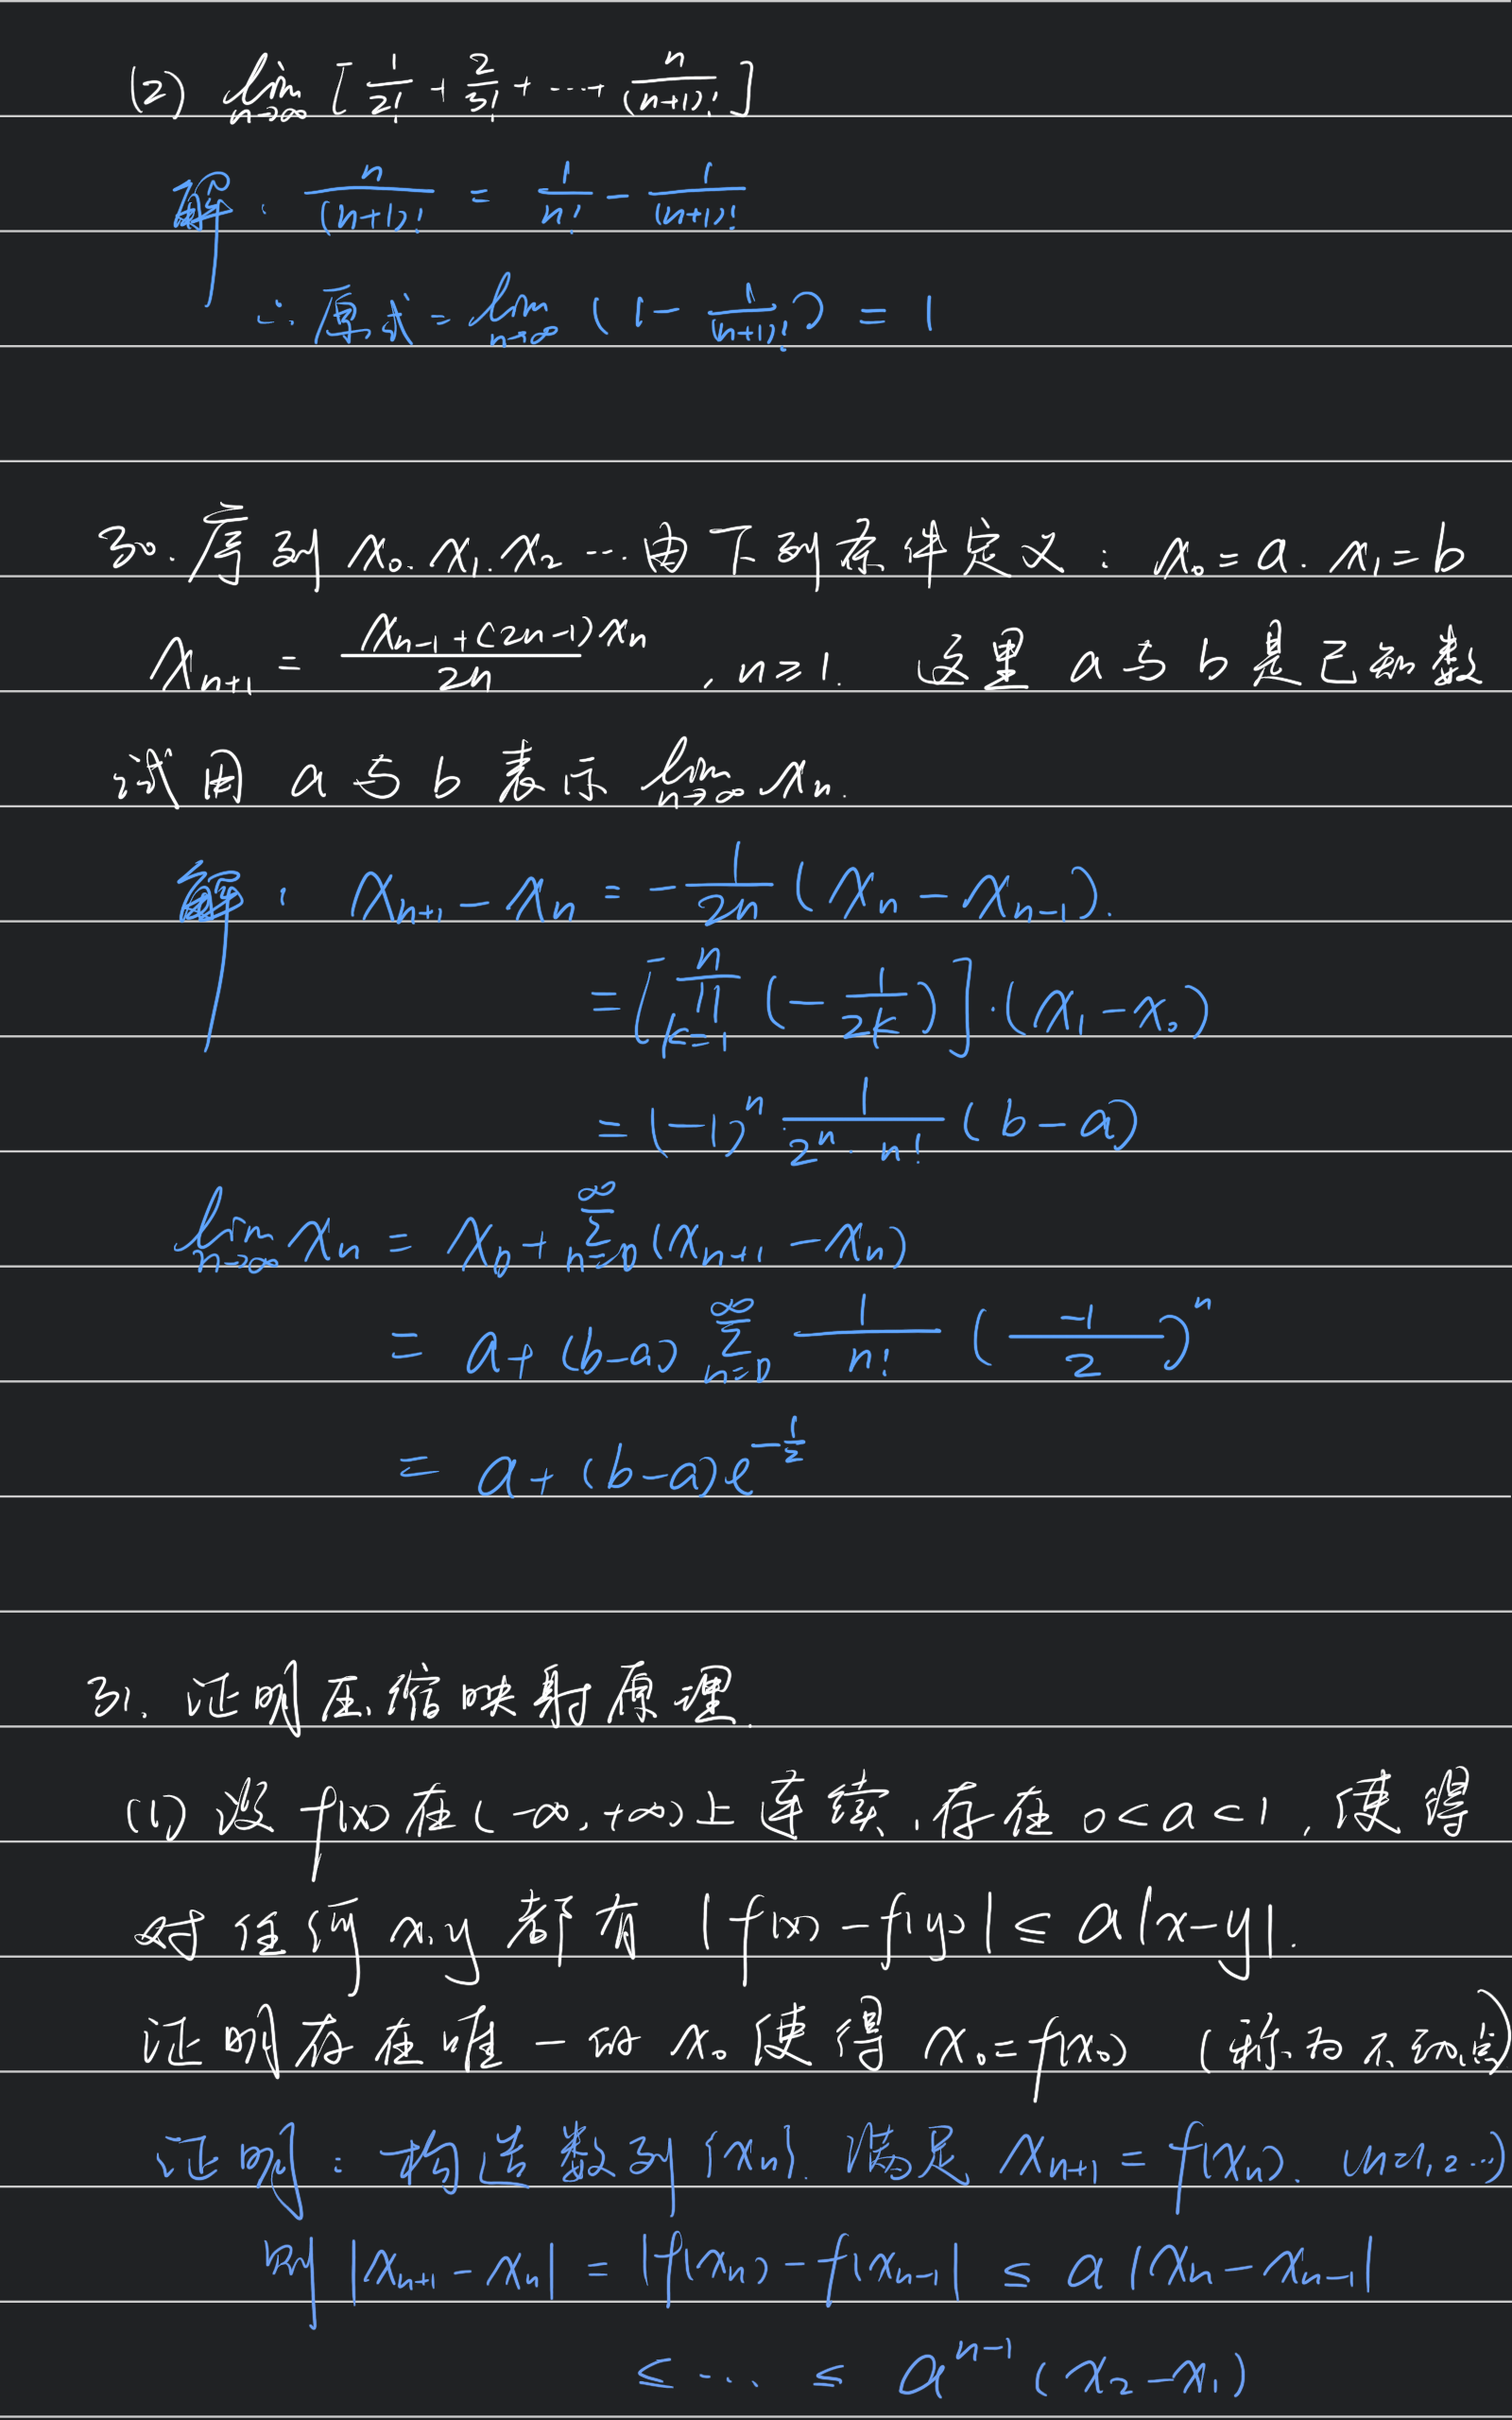 (2) lim n→∞ [1/2! + 2/3! + ··· + n/(n+1)!]
解: n/(n+1)! = 1/n! - 1/(n+1)!
∴ 原式 = lim n→∞ (1 - 1/(n+1)!) = 1
30. 序列 x₀. x₁. x₂ … 由下列条件定义: x₀=a. x₁=b
xₙ₊₁ = (xₙ₋₁+(2n-1)xₙ)/2n , n≥1. 这里 a 与 b 是已知数
试用 a 与 b 表示 lim n→∞ xₙ.
解: xₙ₊₁ - xₙ = -1/2n (xₙ - xₙ₋₁).
= [∏ k=1 n (-1/2k)]·(x₁-x₀)
= (-1)ⁿ 1/(2ⁿ·n!) (b-a)
lim n→∞ xₙ = x₀ + ∑ n=0 ∞ (xₙ₊₁ - xₙ)
= a+(b-a) ∑ n=0 ∞ 1/n! (-1/2)ⁿ
= a+(b-a)e^(-1/2)
31. 证明压缩映射原理.
(1) 设 f(x) 在 (-∞,+∞) 上连续, 存在 0<a<1, 使得
对任何 x,y 都有 |f(x) - f(y)| ≤ a|x-y|.
证明存在唯一的 x₀ 使得 x₀=f(x₀) (称为不动点)
证明: 构造数列{xₙ}. 满足 xₙ₊₁ = f(xₙ). (n=1,2…)
则 |xₙ₊₁ - xₙ| = |f(xₙ) - f(xₙ₋₁| ≤ a |xₙ - xₙ₋₁|
≤ … ≤ aⁿ⁻¹ (x₂-x₁)